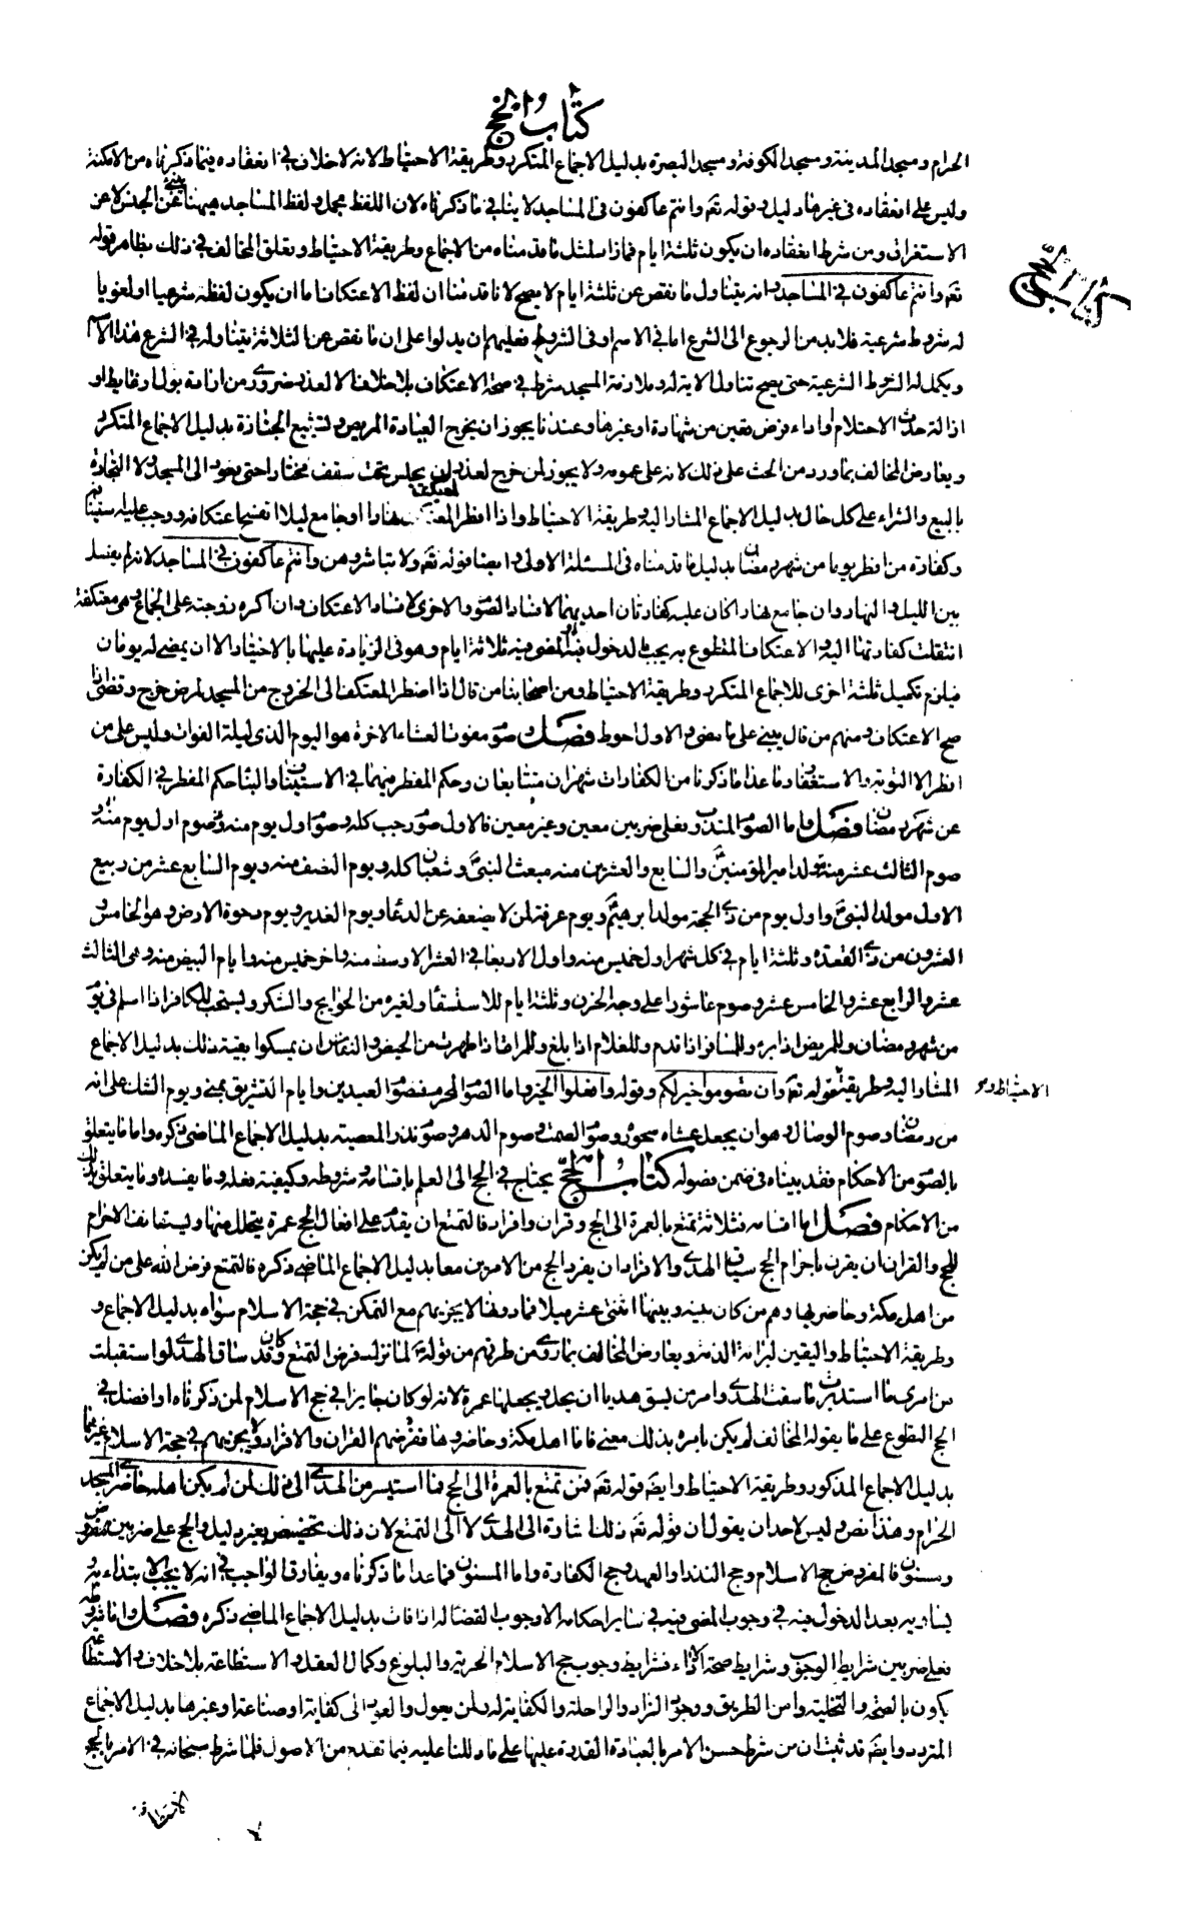 كتاب الحج
الحرام ومسجد المدينة ومسجد الكوفة ومسجد البصرة بدليل الاجماع المتكرر وطريقة الاحتياط لانه لا خلاف في انعقاده فيما ذكرناه من الامكنة
وليس على انعقاده في غيرها دليل وقوله تعم وانتم عاكفون في المساجد لا ينافي ما ذكرناه لان اللفظ مجمل ولفظ المساجد ههنا ينبئ عن الجنس لا عن
الاستغراق ومن شرط انعقاده ان يكون ثلثة ايام فما زاد لمثل ما قدمناه من الاجماع وطريقة الاحتياط وتعلق المخالف في ذلك بظاهر قوله
تعم وانتم عاكفون في المساجد وانه يتناول ما نقص عن ثلثة ايام لا يصح لانا قدمنا ان لفظ الاعتكاف اما ان يكون لفظة شرعيا او لغويا
له شروط شرعية فلا بد من الرجوع الى الشرع اما في الاسم او في الشروط فعليهم ان يدلوا على ان ما نقص عن الثلاثة يتناوله في الشرع هذا الاسم
ويكمل له الشروط الشرعية حتى يصح تناول الاية له وملازمة المسجد شرط في صحة الاعتكاف بلا خلاف الا لعذر ضروري من اراقة بول او غايط او
ازالة حدث الاحتلام او اداء فرض تعين من شهادة او غيرها وعندنا يجوز ان يخرج لعيادة المريض وتشييع الجنازة بدليل الاجماع المتكرر
ويعارض المخالف بما ورد من الحث على ذلك لانه على عمومه ولا يجوز لمن خرج لعذر ان يجلس تحت سقف مختارا حتى يعود الى المسجد ولا التجارة
بالبيع والشراء على كل حال بدليل الاجماع المشار اليه وطريقة الاحتياط واذا افطر المعتكف نهارا او جامع ليلا انفسخ اعتكافه ووجب عليه استينافه
وكفارة من افطر يوما من شهر رمضان بدليل ما قدمناه في المسئلة الاولى وايضا قوله تعم ولا تباشروهن وانتم عاكفون في المساجد لانه لم يفصل
بين الليل والنهار وان جامع نهارا كان عليه كفارتان احديهما لافساد الصوم والاخرى لافساد الاعتكاف وان اكره زوجته على الجماع وهي معتكفة
انتقلت كفارتها اليه والاعتكاف المقطوع به يجب بالدخول فيه المضي فيه ثلاثة ايام وهو في الزيادة عليها بالاختيار الا ان يمضي له يومان
فيلزم تكميل ثلثة اخرى للاجماع المتكرر وطريقة الاحتياط ومن اصحابنا من قال اذا اضطر المعتكف الى الخروج من المسجد لمرض خرج وقضى اذا
صح الاعتكاف ومنهم من قال يبني على ما مضى والاول احوط فصل وصوم مفوت العشاء الاخرة هو اليوم الذي ليلة الفوات وليس على من
افطر الا التوبة والاستغفار وما عدا ما ذكرنا من الكفارات شهران متتابعان وحكم المفطر فيهما في الاستيناف والبناء حكم المفطر في الكفارة
عن شهر رمضان فصل واما الصوم المندوب فعلى ضربين معين وغير معين فالاول صوم رجب كله وصوم اول يوم منه وصوم اول يوم منه و
صوم الثالث عشر منه مولد امير المؤمنين والسابع والعشرين منه مبعث النبي وشعبان كله ويوم النصف منه ويوم السابع عشر من ربيع
الاول مولد النبي واول يوم من ذي الحجة مولد ابرهيم ويوم عرفة لمن لا يضعفه عن الدعاء ويوم الغدير ويوم دحوة الارض وهو الخامس و
العشرون من ذي القعدة وثلثة ايام في كل شهر اول خميس منه واول الاربعا في العشر الاوسط منه واخر خميس منه وايام البيض منه وهي الثالث
عشر والرابع عشر والخامس عشر وصوم عاشورا على وجه الحزن وثلثة ايام للاستسقاء ولغيره من الحوايج والشكر ويستحب للكافر اذا اسلم في يوم
من شهر رمضان وللمريض اذا برء وللمسافر اذا قدم وللغلام اذا بلغ وللمراة اذا طهرت من الحيض والنفاس ان يمسكوا بقية ذلك بدليل الاجماع
المشار اليه وطريقة قوله تعم وان تصوموا خير لكم وقوله وافعلوا الخير واما الصوم المحرم فصوم العيدين وايام التشريق بمنى ويوم الشك على انه
الاحتياط و
من رمضان وصوم الوصال وهو ان يجعل عشاه سحوره وصوم الصمت وصوم الدهر وصوم نذر المعصية بدليل الاجماع الماضي ذكره واما ما يتعلق
بالصوم من الاحكام فقد بيناه في ضمن فصوله كتاب الحج يحتاج في الحج الى العلم باقسامه وشروطه وكيفية فعله وما يفسده وما يتعلق بذلك
من الاحكام فصل اما اقسامه فثلاثة تمتع بالعمرة الى الحج وقران وافراد فالتمتع ان يقدم على افعال الحج عمرة يتحلل منها ويستانف الاحرام
للحج والقران ان يقرن باحرام الحج سياق الهدي والافراد ان يفرد الحج من الامرين معا بدليل الاجماع الماضي ذكره فالتمتع فرض الله على من لم يكن
من اهل مكة وحاضريها وهم من كان بينه وبينها اثنى عشر ميلا فما دونها لا يجزيهم مع التمكن في حجة الاسلام سواه بدليل الاجماع و
وطريقة الاحتياط واليقين لبراءة الذمة ويعارض المخالف بما روي من طرقهم من قوله لما نزل فرض التمتع وكان قد ساق الهدي لو استقبلت
من امري ما استدبرت ما سقت الهدي وامر من لم يسق هديا ان يحل ويجعلها عمرة لانه لو كان جايزا في حج الاسلام لمن ذكرناه او افضل في
الحج المقطوع على ما يقوله المخالف لم يكن لامره بذلك معنى فاما اهل مكة وحاضروها ففرضهم القران والافراد ولا يجزيهم في حجة الاسلام غيرهما
بدليل الاجماع المذكور وطريقة الاحتياط وايضا قوله تعم فمن تمتع بالعمرة الى الحج فما استيسر من الهدي الى ذلك لمن لم يكن اهله حاضري المسجد
الحرام وهذا نص وليس لاحد ان يقول ان قوله تعم ذلك اشارة الى الهدي لا الى التمتع لان ذلك تخصيص بغير دليل والحج على ضربين مفروض
ومسنون فالمفروض حج الاسلام وحج النذر او العهد وحج الكفارة واما المسنون فما عدا ما ذكرناه ويفارق الواجب في انه لا يجب الابتداء به و
يساويه بعد الدخول فيه في وجوب المضي فيه في ساير احكامه الا وجوب القضاء له اذا فات بدليل الاجماع الماضي ذكره فصل واما شروطه
فعلى ضربين شرايط الوجوب وشرايط صحة الاداء فشرايط وجوب حج الاسلام الحرية والبلوغ وكمال العقل والاستطاعة بلا خلاف والاستطاعة
يكون بالصحة والتخلية وامن الطريق ووجود الزاد والراحلة والكفاية له ولمن يعول والعود الى كفاية او صناعة او غيرها بدليل الاجماع
المتردد وايضا قد ثبت ان من شرط حسن الامر بالعبادة القدرة عليها على ما دللنا عليه فيما تقدم من الاصول فلما شرط سبحانه في الامر بالحج
الاستطاعة
كتاب الحج